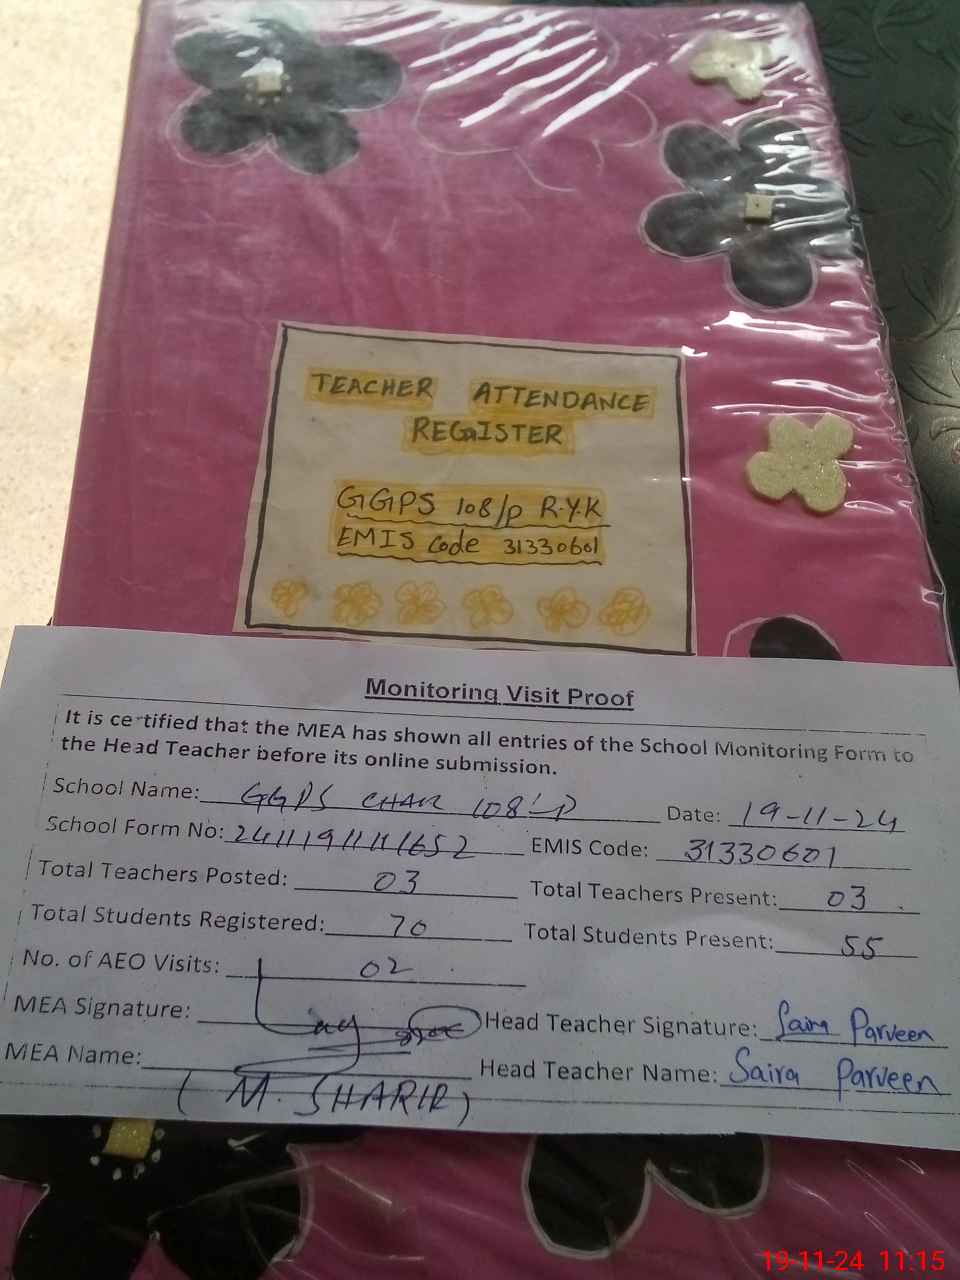 TEACHER ATTENDANCE
REGISTER
GGPS 108/P R.Y.K
EMIS Code 31330601
Monitoring Visit Proof
It is certified that the MEA has shown all entries of the School Monitoring Form to
the Head Teacher before its online submission.
School Name: GGPS CHAK 108/P Date: 19-11-24
School Form No: EMIS Code: 31330601
Total Teachers Posted: 03 Total Teachers Present: 03
Total Students Registered: 70 Total Students Present: 55
No. of AEO Visits: 02
MEA Signature: Head Teacher Signature: Saira Parveen
MEA Name: Head Teacher Name: Saira Parveen
(M.
19-11-24 11:15